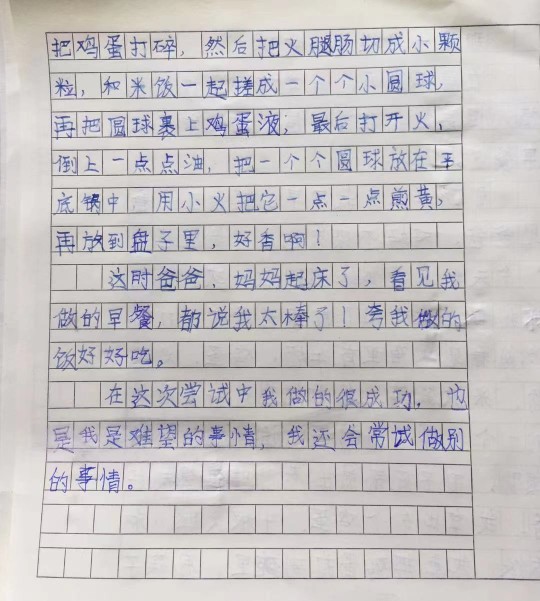 把鸡蛋打碎，然后把火腿肠切成小颗
粒，和米饭一起搓成一个个小圆球，
再把圆球裹上鸡蛋液，最后打开火，
倒上一点点油，把一个个圆球放在平
底锅中，用小火把它一点一点煎黄，
再放到盘子里，好香啊！
这时爸爸、妈妈起床了，看见我
做的早餐，都说我太棒了！夸我做的
饭好好吃。
在这次尝试中我做的很成功，也
是我是难望的事情，我还会常试做别
的事情。